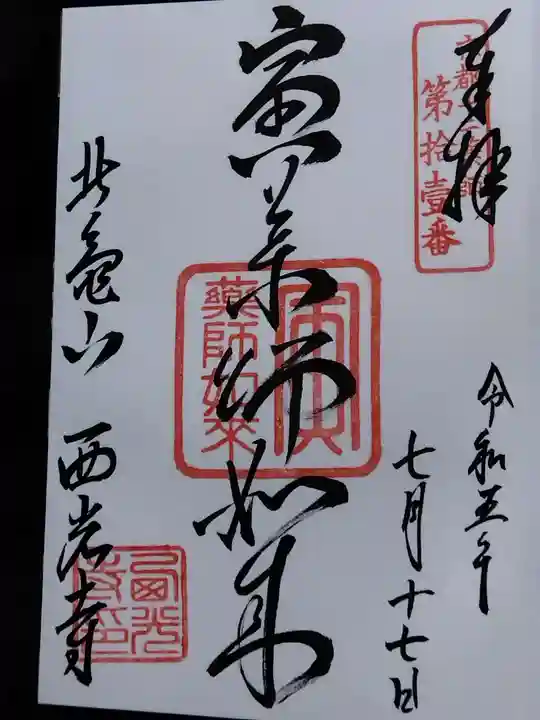 奉拝
京都十二薬師
第拾壹番
令和五年
七月十七日
寅薬師如来
寅
藥師如來
北亀山 西光寺
西光
寺印